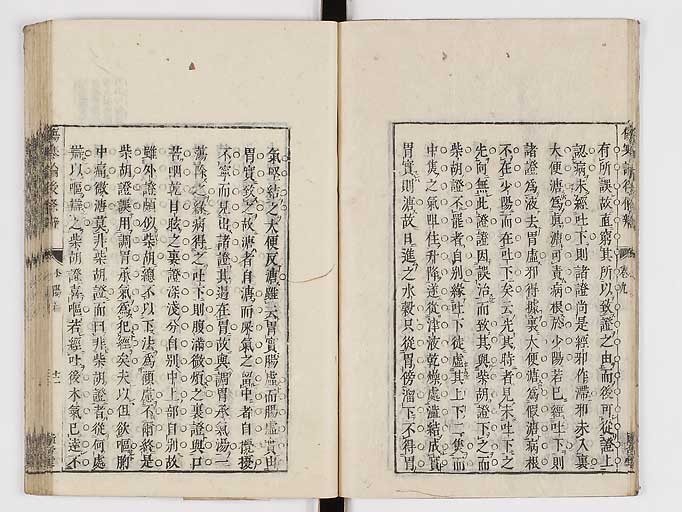 有所誤故直窮其所以致證之由而後可從證上
認病未經吐下則諸證尚是經邪作滯邪未入裏
大便溏爲眞溏可責病根於少陽若已經吐下則
諸證爲液去胃虛邪得據裏大便溏爲假溏病根
不在少陽而在吐下矣云先其時者見未吐下之
先向無此證證因誤治而致其與柴胡證下之而
柴胡證不罷者自別緣吐下徒虛其上下二焦而
中焦之氣阻住升降遂從津液乾燥處澀結成實
胃實則溏故日進之水穀只從胃傍溜下不得胃
氣堅結之大便反溏雖云胃實腸虛而腸虛實由
胃實致之故溏者自溏而屎氣之鬱中者自擾擾
不寧而見出諸證其過在胃故與調胃承氣湯一
蕩除之緣病得之吐下則腹滿微煩之裏證與口
苦咽乾目眩之裏證深淺分自別中上部自別故
雖外證頗似柴胡總不以下法爲顧慮不爾終是
柴胡證誤用調胃承氣爲犯經矣夫以但欲嘔胸
中痛微溏莫非柴胡證而曰非柴胡證者從何處
辯以嘔辯之柴胡證喜嘔若經吐後木氣已達不
卷九
少陽